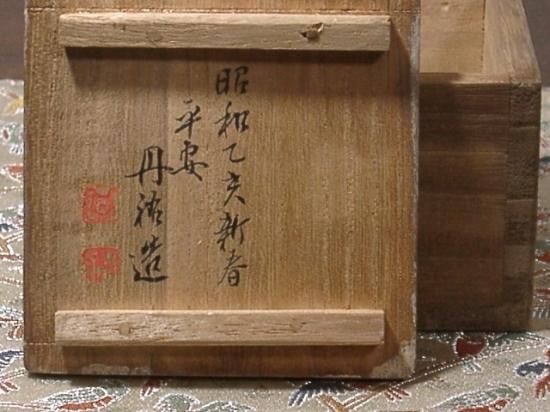 昭和乙亥新春
平安
丹祐造